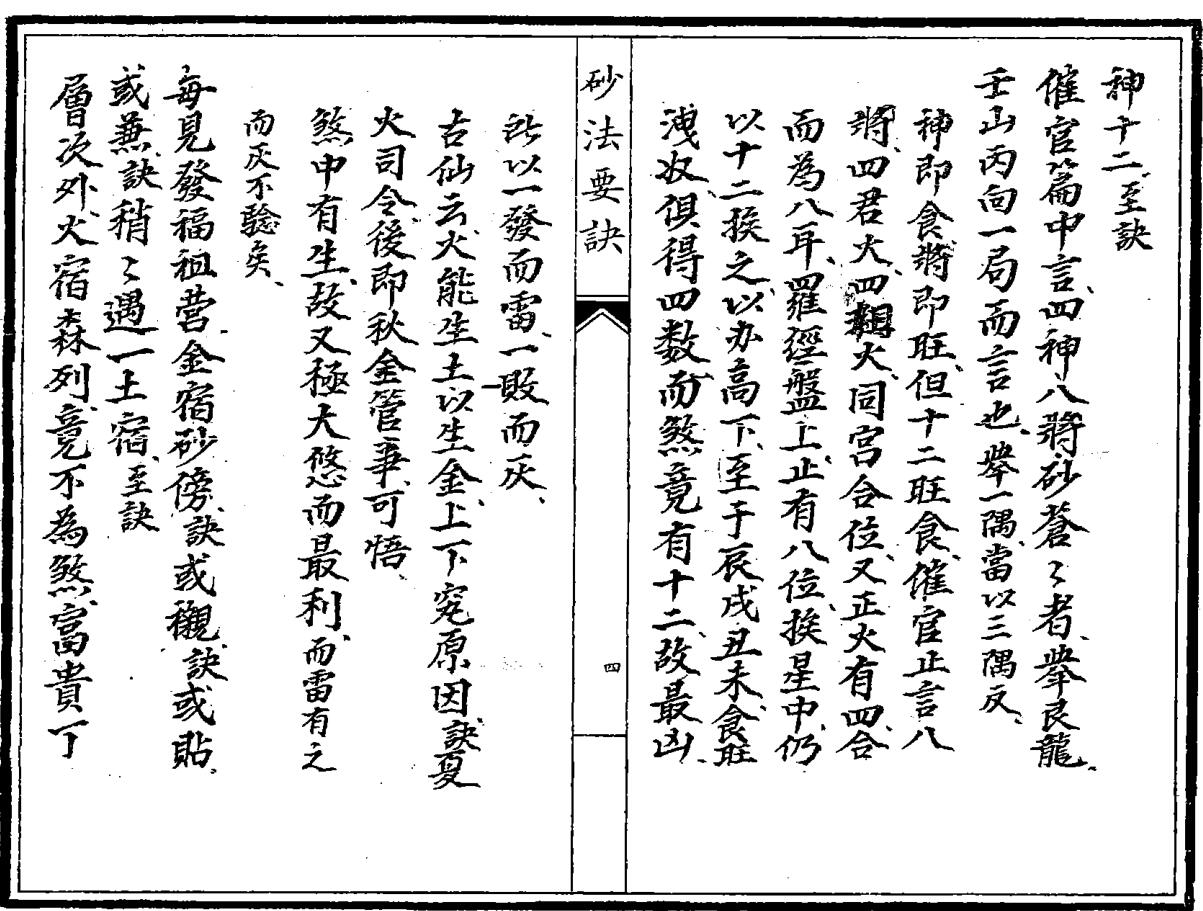 神十二、至訣
催官篇中言、四神八將砂蒼々者、舉艮龍、
壬山丙向一局而言也、舉一隅、當以三隅反、
神即食、將即旺、但十二旺食、催官止言八
將、四君火、四相火、同宮合位、又正火有四、合
而為八耳、羅經盤上、止有八位、挨星中、仍
以十二挨之、以办高下、至于辰戌丑未、食旺
洩奴、俱得四数、而煞竟有十二、故最凶、
砂法要訣
四
所以一發而雷、一敗而灰、
古仙云、火能生土、以生金、上下究原因、訣夏
火司令、後即秋金管事、可悟、
煞中有生、故又極大悠、而最利、而雷有之
而灰不驗矣、
每見發福祖営、金宿砂傍、訣或襯、訣或貼、
或兼、訣稍々遇一土宿、至訣
層次外、火宿森列、竟不為煞、富貴丁